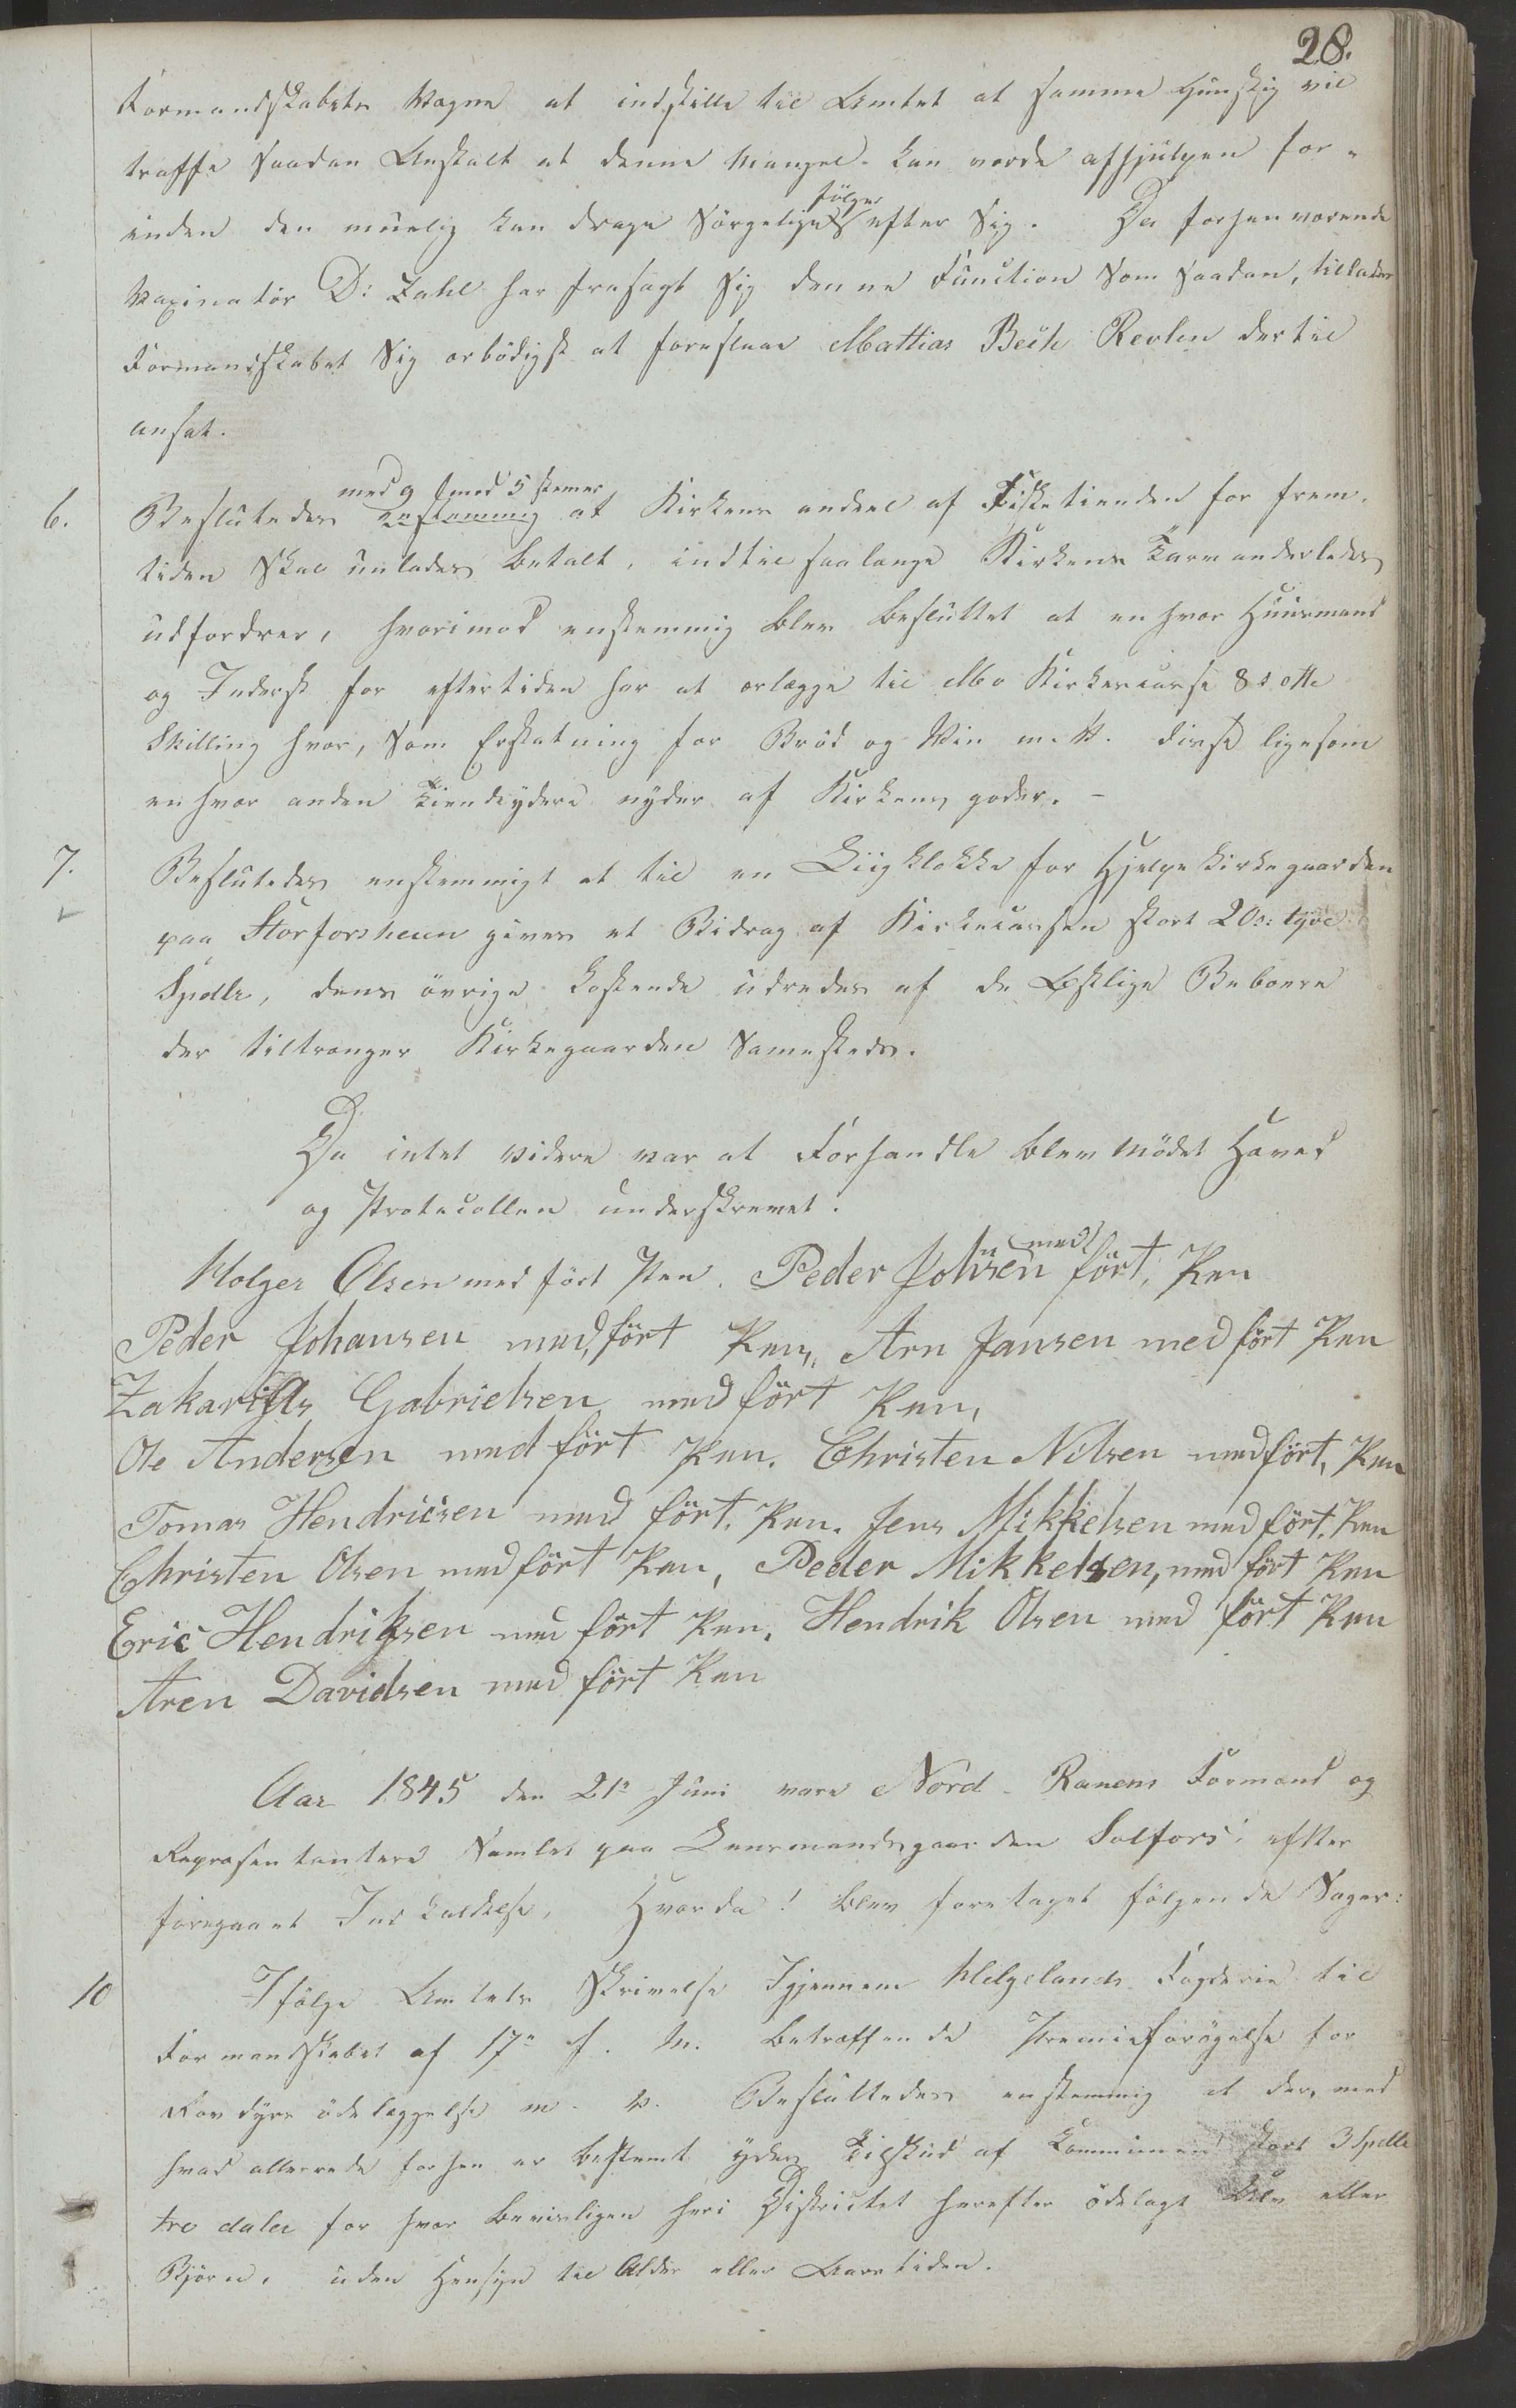 28.
Formandskabets Vegne at indstille til Amtet at samme gunstig vil
træffe saadan Anstalt at denne Mangel kan vorde afhjulpen for-
inden den muelig kan drage Sörgelige følger efter Sig. Da forhenværende
Vaxinatör D: Zahl har frasagt Sig denne Function som saadan, tillader
Formandskabet Sig ærbödigst at foreslaae Mattias Bech Revlen dertil
ansat.
6. Besluttedes enstemmig med 9 imod 5 stemer at Kirkens andeel af Fisketienden for frem-
tiden skal unlades betalt, indtil saalænge Kirkens Tarv anderledes
udfordrer, hvorimod enstemmig blev besluttet at enhver Huusmand
og Inderst for eftertiden har at erlægge til Mo Kirkecasse 8 s otte
Skilling hver, som Erstatning for Bröd og Vin m. V. disse ligesom
enhver anden Tiendeydere nyder af Kirkens goder. -
7. Besluttedes enstemmigt at til en Liigklokke for Hjelpekirkegaarden
paa Storforsheien gives et Bidrag af Kirkecassen stort 20s: tyve
Spdlr, dens övrige kostende udredes af de Östlige Beboere
der tiltrænger Kirkegaarden samesteds.
Da intet videre var at Forhandle blev Mödet Hævet
og Protocollen underskrevet.
Holger Olsen med fört Pen. Peder Johnsen med fört, Pen
Peder Johansen med, fört Pen, Arn Jansen med fört Pen
Zakarias Gabrielsen med fört Pen,
Ole Andersen med fört Pen. Christen Nilsen med fört, Pen
Tomas Hendricsen med fört. Pen. Jens Mikkelsen med fört. Pen
Christen Olsen med fört Pen, Peder Mikkelsen, med fört Pen
Eric Hendriksen med fört Pen, Hendrik Olsen med fört Pen
Aren Davidsen med fört Pen
Aar 1845 den 21de Juni vare Nord-Ranens Formænd og
Repræsentantere Samlet paa Lensmandsgaarden Selfors, efter
foregaaet Indkaldelse, Hvorda! blev foretaget fölgende Sager:
10 Ifölge Amtets Skrivelse Igjennem Helgelands Fogderie til
Formandskabet af 17de f. M. betræffende Præmieforögelse for
Rovdyrs ödelæggelse m. v. Besluttedes enstemmig at der, med
hvad allerrede forhen er bestemt ydes Tilskud af Kommunen stort 3 Spdlr
tre daler for hver beviisligen heri Districtet herefter ödelagt Ulv eller
Björn, uden Hensyn til Alder eller Aarstiden.